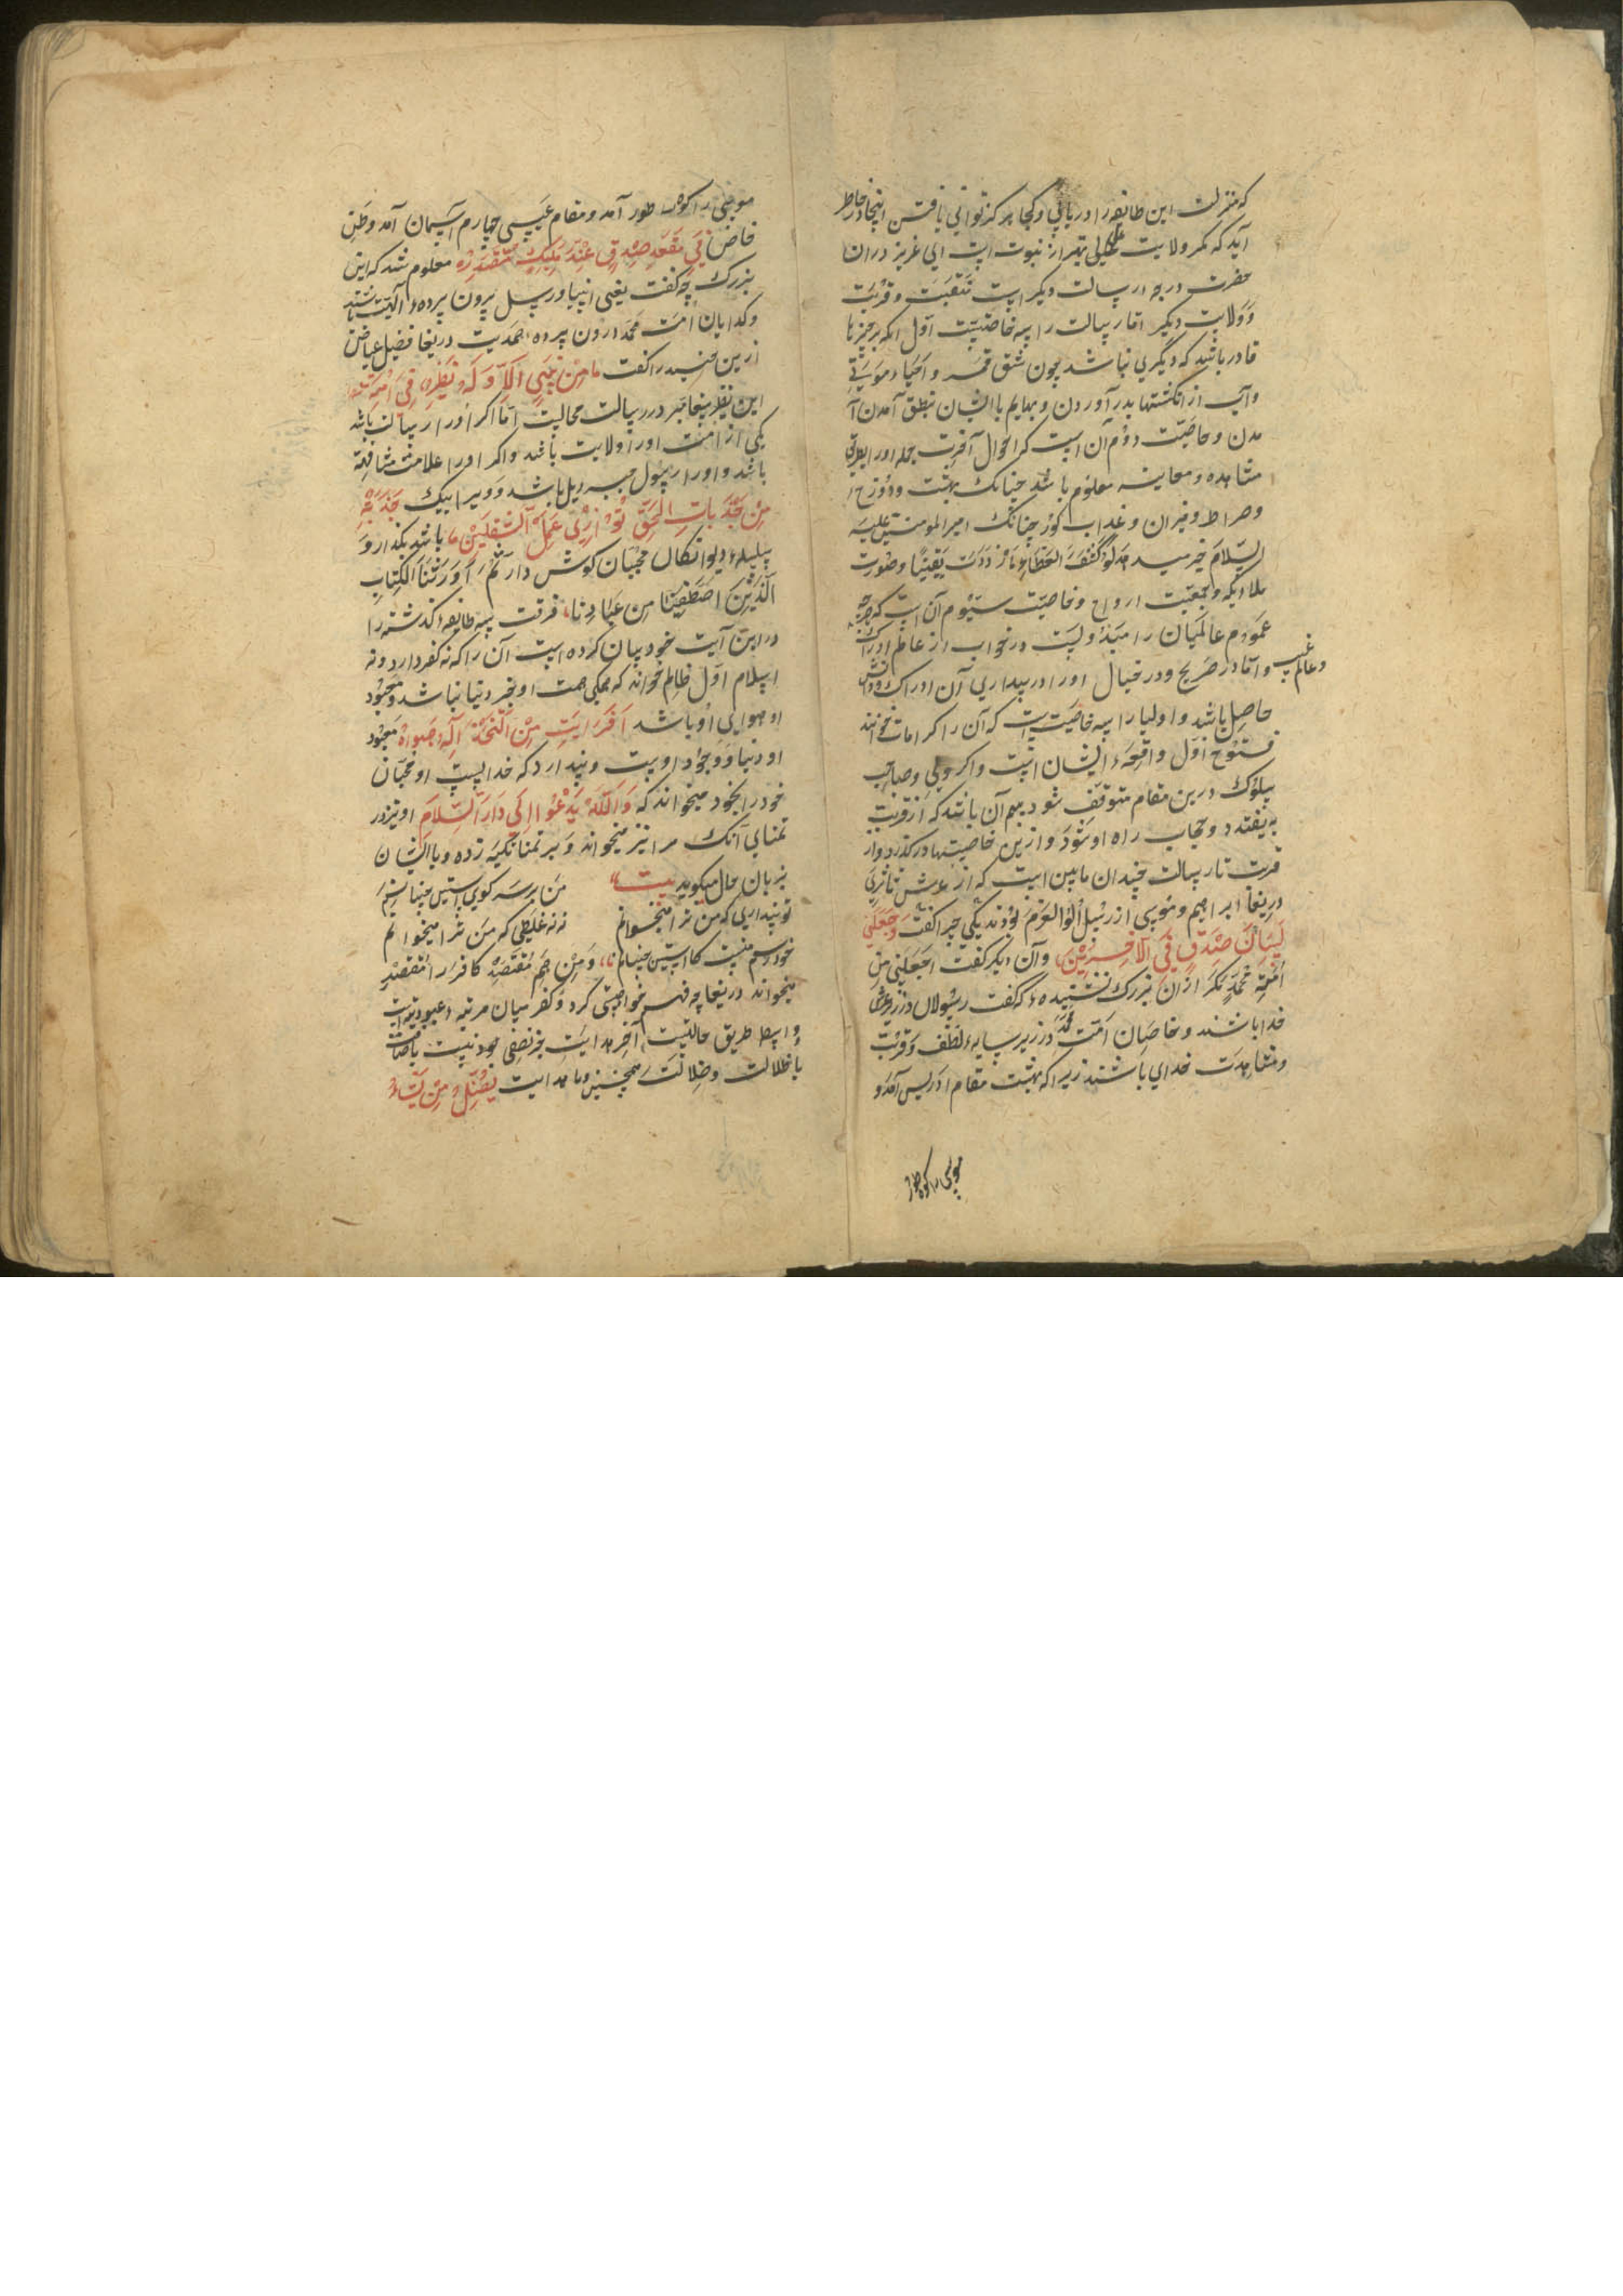 که منزلت این طایفه را دریابی و کجا هرگز توانی یافتن اینجا در خاطر
آید که مگر ولایت علی بهتر از نبوت است ای عزیز دران
حضرت درجه رسالت دیگر است و قربت
و ولایت دیگر اما رسالت را سه خاصیت است اول آنکه بر چیزها
قادر باشد که دیگری نباشد چون شق قمر و احیاء موتی
و آب از انگشتها بدر آوردن و بهایم با ایشان نطق آمدن آ
مدن و خاصیت دوم آن است که احوال آخرت جمله او را بطریق
مشاهده و معاینه معلوم باشد چنانک بهشت و دوزخ
و صراط و میزان و عذاب گور چنانک امیر المومنین علیه
السلام خبر میدهد لو کشف الغطاء ما ازددت یقینا و صورت
ملائیکه و جمعیت ارواح و خاصیت سیوم آن است که هرچه
عموم عالمیان را در خواب از عالم ادراک
و عالم غیب
و اما در صریح و در خیال او را در بیداری آن ادراک و دانش
حاصل باشد و اولیا را سه خاصیت است که آن را کرامات خوانند
فتوح اول واقعهٔ ایشان است و اگر ولی و صاحب
سلوک درین مقام متوقف شود بیم آن باشد که از قربت
بیفتد و حجاب راه او شود و ازین خاصیتها درگذرد و از
قربت تا رسالت چندان مابین است که از عرش تا ثری
دریغا ابراهیم و موسی از رسل اولوالعزم بودند یکی چرا گفت وَاجْعَلْنِی
لِسَانَ صِدْقٍ فِی الْآخِرِینَ و آن دیگر گفت اجعلنی من
امة محمد مگر از آن بزرگ نشنیده که گفت رسولان در زیر عرش
خدا باشند و خاصان امت محمد در زیر سایهٔ لطف و قربت
و مشاهدت خدای باشند زیرا که بهشت مقام ادریس آمد و
موسی را کوه طور
موسی را کوه طور آمد و مقام عیسی چهارم آسمان آمد و وطن
خاص فِی مَقْعَدِ صِدْقٍ عِنْدَ مَلِیکٍ مُقْتَدِرٍ معلوم شد که این
بزرگ چه گفت یعنی انبیا و رسل برون پردهٔ الهیت باشند
و گدایان امت محمد درون پردهٔ صمدیت دریغا فضیل عیاض
ازین جنید را گفت ما مِنْ نَبِیٍّ اِلّا وَ لَهُ نَظِیرٌ فِی اُمَّتِهِ
این نظیر پیغامبر در رسالت محالیت اما اگر او را رسالت باشد
یکی از امت او را ولایت باشد و اگر او را علامت مشافهة
باشد و او را رسول جبرئیل باشد و ویرا بیک جَذْبَةٌ
مِنْ جَذَبَاتِ الْحَقِّ تُوَازِی عَمَلَ الثَّقَلَیْنِ باشد بگذار و
سلسلهٔ دیوانگان محبان گوش دار ثُمَّ اَوْرَثْنَا الْکِتَابَ
الَّذِینَ اصْطَفَیْنَا مِنْ عِبَادِنَا فرقت سه طایفهٔ گذشته را
در این آیت خود بیان کرده است آن را که نه کفر دارد و نه
اسلام اول ظالم خواند که همگی همت او بجز دنیا نباشد و معبود
او هوای او باشد اَفَرَاَیْتَ مَنِ اتَّخَذَ اِلٰهَهُ هَوٰاهُ معبود
او دنیا و وجود اوست و پندارد که خداست او محبان
خود را بخود میخواند که وَاللّٰهُ یَدْعُوا اِلٰی دَارِ السَّلَامِ او نیز در
تمنای آنک مرا نیز میخواند و بر تمنا تکیه زده و با ایشان
بزبان حال میگوید بیت من بر سر کوی آستین جنبانم
تو پنداری که من ترا میخوانم نه نه غلطی که من ترا میخوانم
خود رسم منست کاستین جنبانم وَمِنْهُمْ مُقْتَصِدٌ کافر را مقتصد
میخواند دریغا چه فهم خواهی کرد و کفر میان مرتبهٔ عبودیت است
و اوسط طریق حالتیست آخر هدایت بجز نصفی نیست با ضلالت
با ظلالت و ضلالت همچنین با هدایت یُضِلُّ مَنْ یَشَاءُ